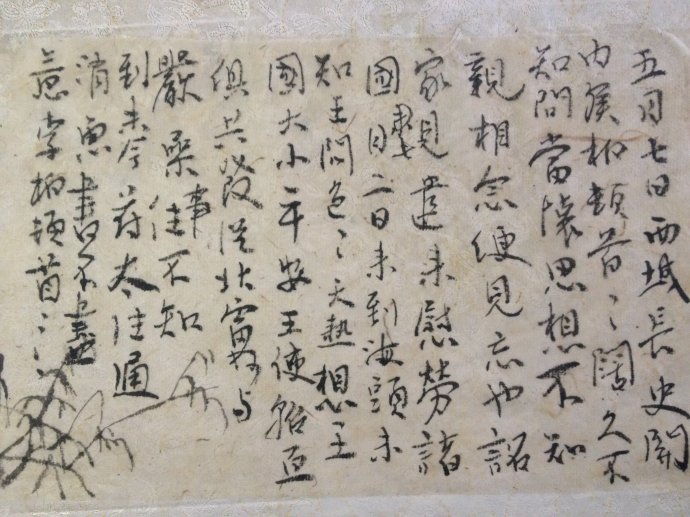 五月七日西域長史關
內侯柏頓首々闊久不
知問常懷思想不知
親相念便見忘也詔
家見遣來慰勞諸
國月二日來到海頭未
知王問邑々天熱想王
國大小平安王使招亘
俱共發從北虜与
嚴參事往不知
到未今符太往通
消息書不盡
意李柏頓首々